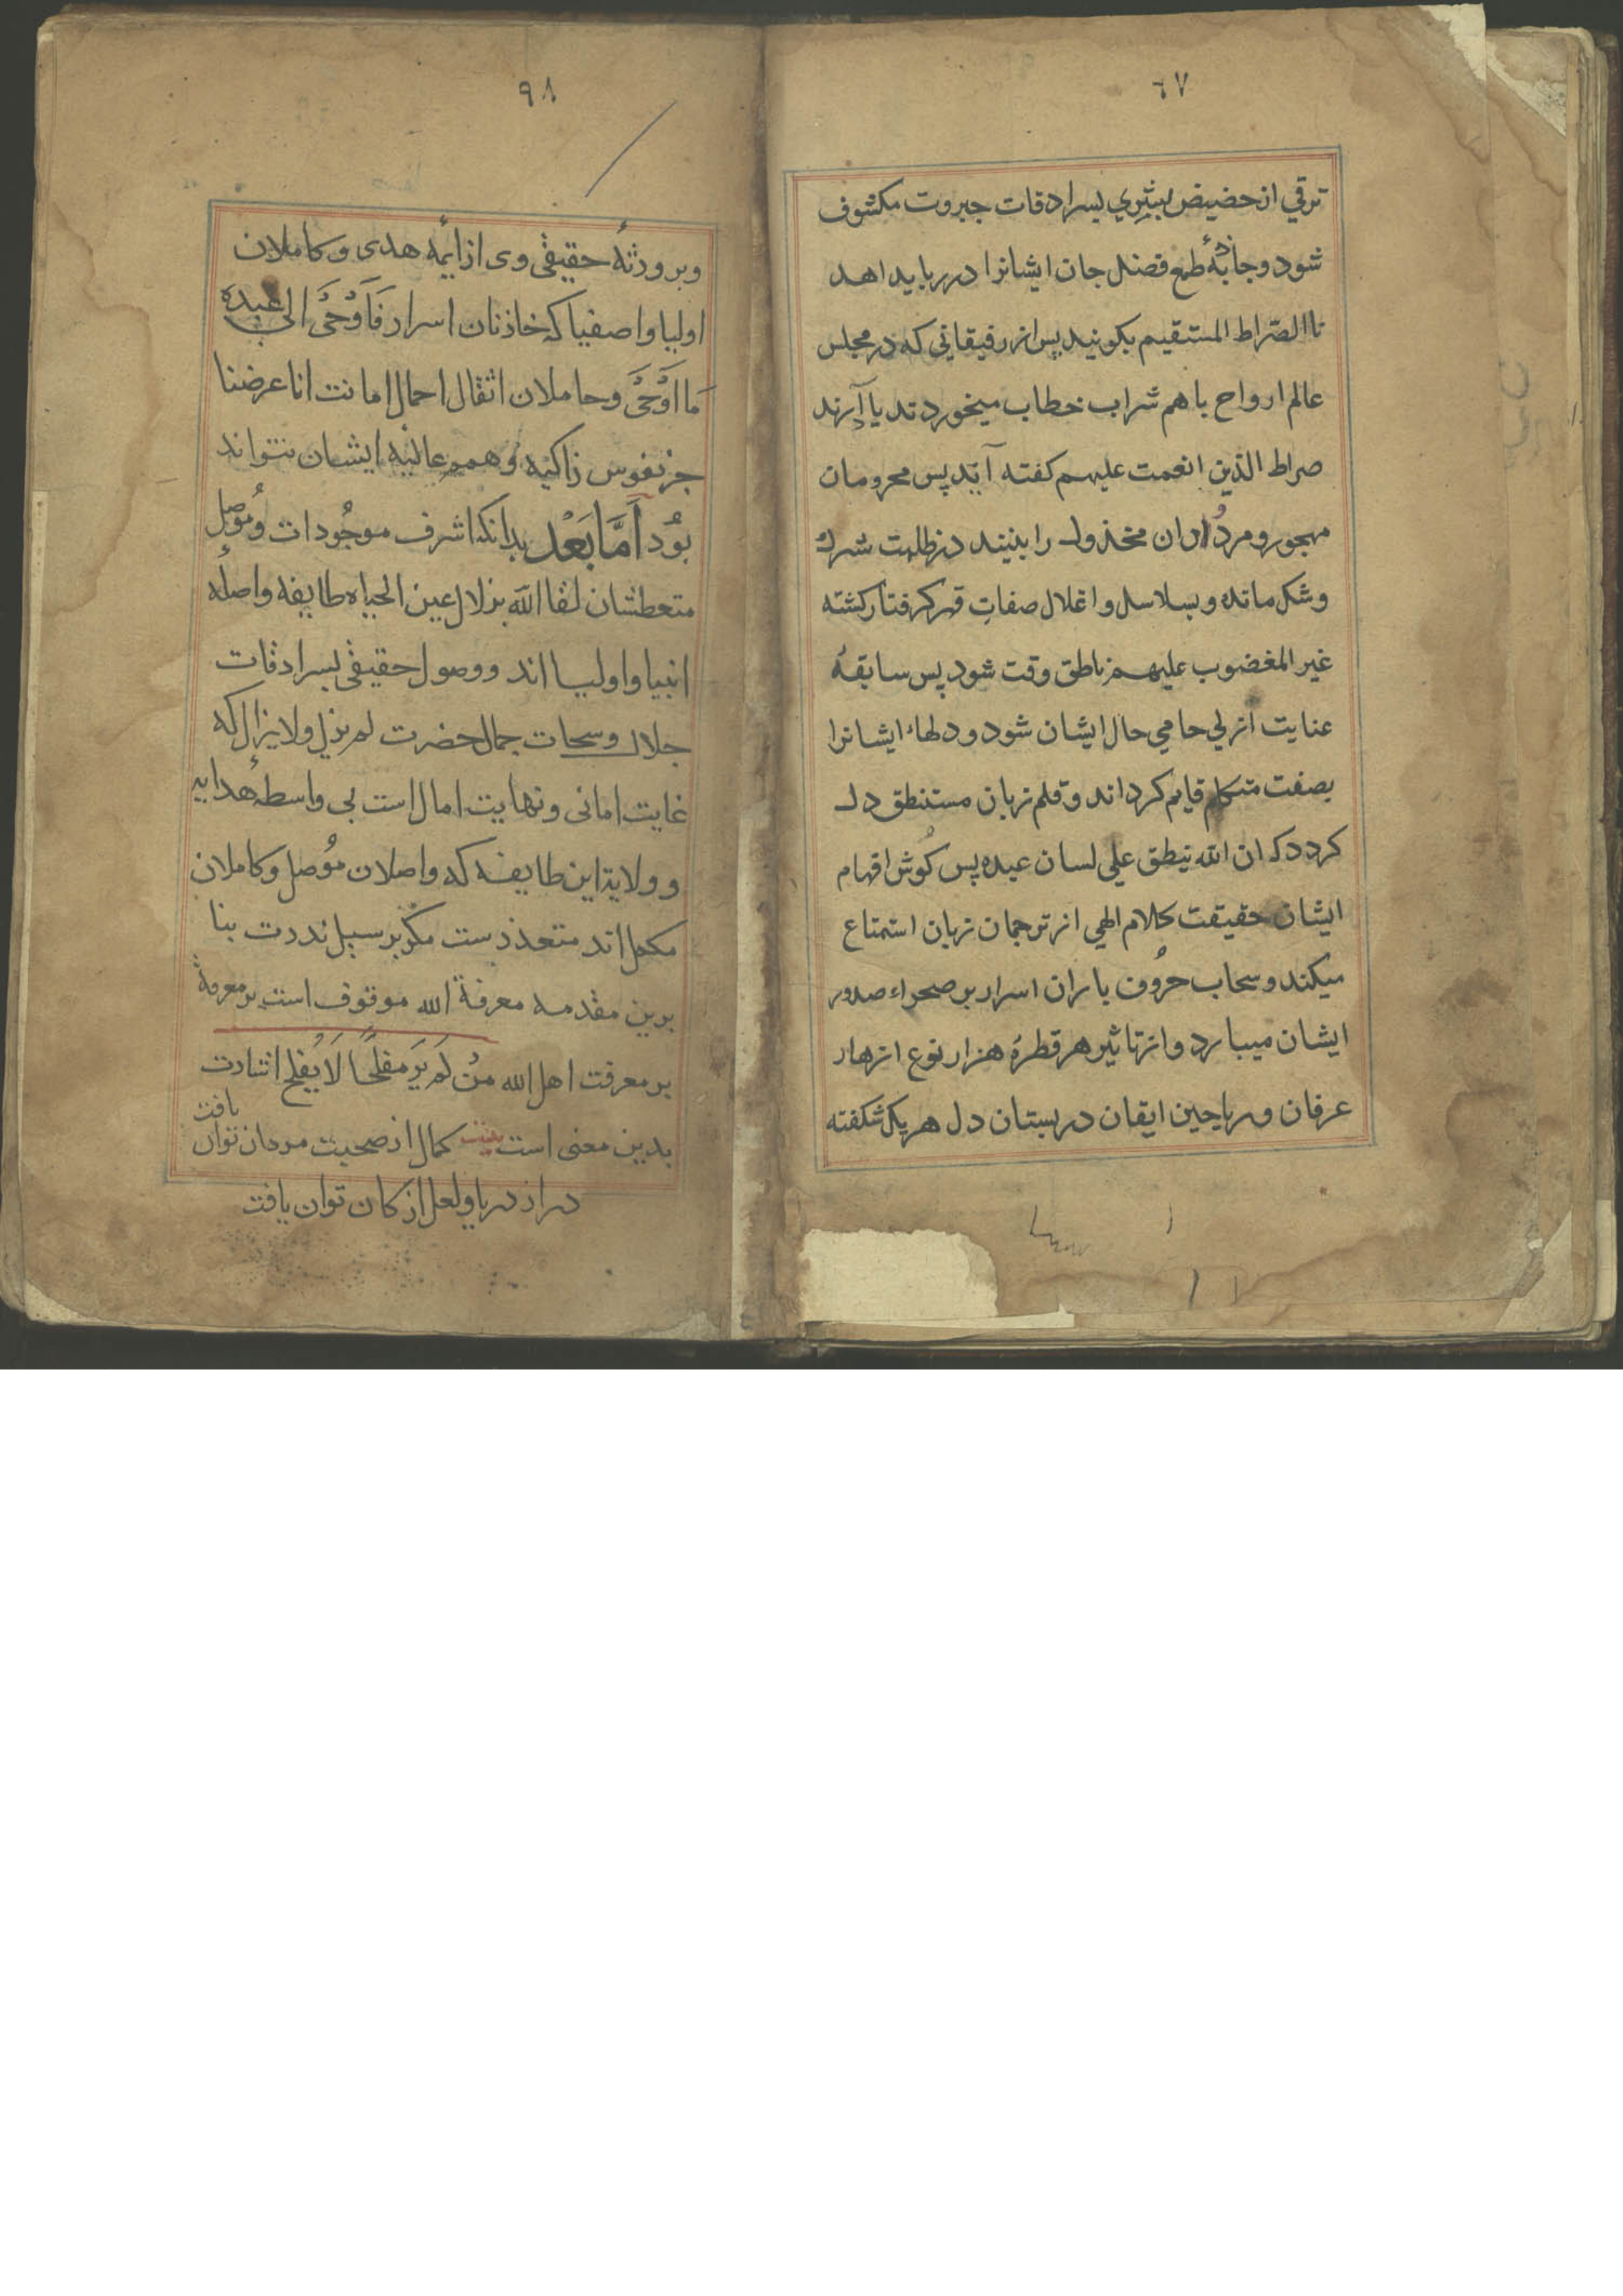 ٦٧
ترقي از حضيض بشري بسرادقات جبروت مكشوف
شود و جاذبهٔ طمع فضل جان ايشانرا در ربايد اهد
نا الصّراط المستقيم بكويند پس از رفيقاني كه در مجلس
عالم ارواح باهم شراب خطاب ميخوردند ياد آرند
صراط الذين انعمت عليهم كفته آيد پس محرومان
مهجور و مردُ ان مخذول را بينند در ظلمت شرك
و شك مانده و بسلاسل و اغلال صفات قهر كرفتار كشته
غير المغضوب عليهم ناطق وقت شود پس سابقهٔ
عنايت ازلي حامي حال ايشان شود و دلهاء ايشانرا
بصفت متكلم قايم كرداند و قلم زبان مستنطق دل
كردد كه ان الله ينطق علي لسان عبده پس كُوش افهام
ايشان حقيقت كلام الهي از ترجمان زبان استمتاع
ميكند و سحاب حرُوف باران اسرار بر صحراء صدور
ايشان ميبارد و از تاثير هر قطرهٔ هزار نوع ازهار
عرفان و رياحين ايقان در بستان دل هر يك شكفته
٩٨
و بر ورثهٔ حقيقى وى از ايمهٔ هدى و كاملان
اوليا و اصفيا كه خازنان اسرار فَاَوْحَى الى عبده
مَا اَوْحَى و حاملان اثقال احمال امانت انا عرضنا
جز نفوس زاكيه و همم عاليه ايشان نتواند
بُود اَمَّا بَعْد بدانكه اشرف موجُودات و مُوصل
متعطشان لقا الله بزلال عين الحياه طايفه واصلهٔ
انبيا و اوليا اند و وصول حقيقى بسرادقات
جلال و سبحات جمال حضرت لم يزل ولا يزال كه
غايت امانى و نهايت امال است بى واسطهٔ هدايه
و ولاية اين طايفه كه واصلان مُوصل و كاملان
مكمل اند متعذرست مكر بر سبيل ندرت بنا
برين مقدمه معرفة الله موقوف است بر معرفة
بر معرفت اهل الله منْ لَم يَرَ مفلحًا لَا يُفلح اشارت
بدين معنى است بيت كمال از صحبت مردان توان يافت
در از دريا و لعل از كان توان يافت